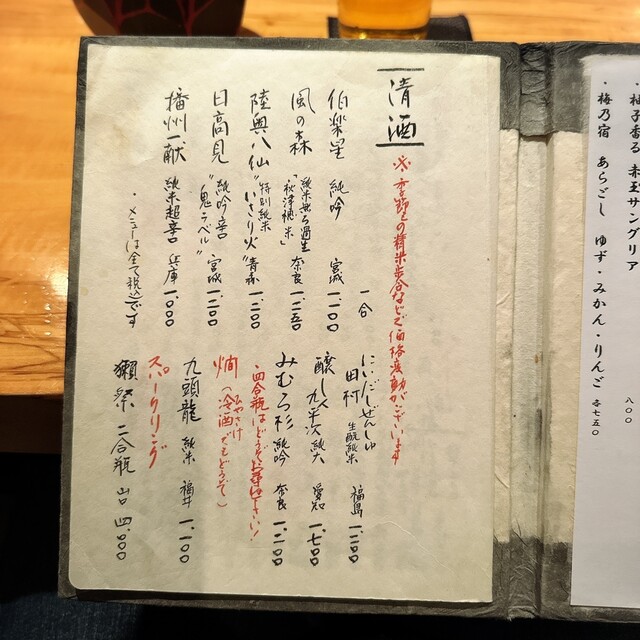 清酒
※季節との精米歩合などで価格変動がございます
一合
伯楽星 純吟 宮城 一、二〇〇
風の森 純米無ろ過生「秋津穂米」 奈良 一、二五〇
陸奥八仙 特別純米 "いさり火" 青森 一、二〇〇
日高見 純吟辛 "鬼ラベル" 宮城 一、二〇〇
播州一献 純米超辛 兵庫 一、〇〇〇
・メニューは全て税込です
にいだしぜんしゅ
田村 生酛純米 福島 一、二〇〇
醸し人九平次 純大 愛知 一、七〇〇
みむろ杉 純吟 奈良 一、二〇〇
・四合瓶はどうぞお尋ね下さい!
燗(冷酒でもどうぞ)
ひやさけ
九頭龍 純米 福井 一、一〇〇
スパークリング
獺祭 二合瓶 山口 四、〇〇〇
・柚子香る 赤玉サングリア 八〇〇
・梅乃宿 あらごし ゆず・みかん・りんご 各七五〇